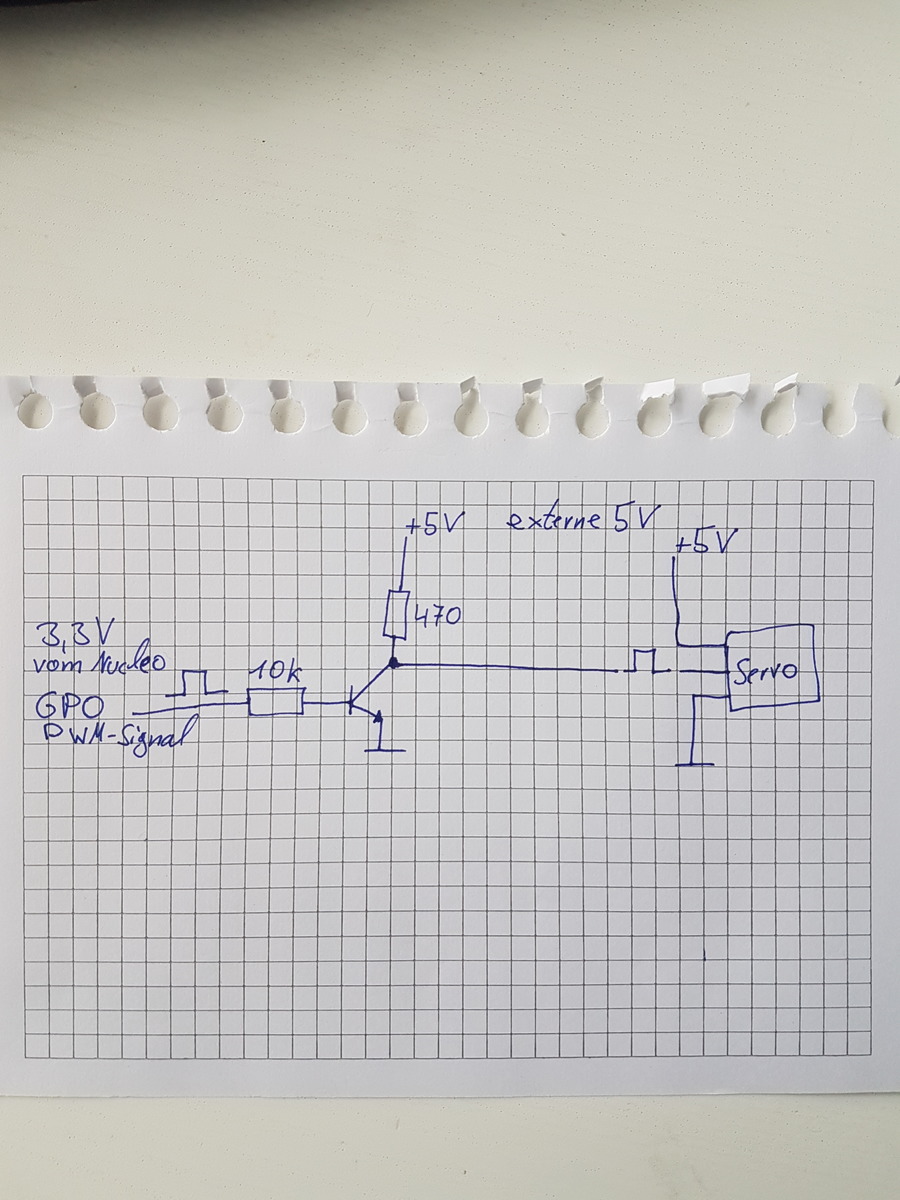 +5V
externe 5V
+5V
470
3,3V
vom Nucleo
10k
Servo
GPO
PWM-Signal